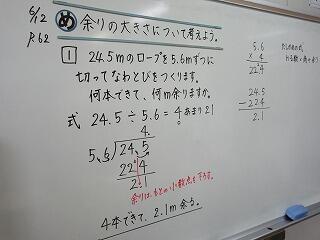 6/12
P.62
め 余りの大きさについて考えよう。
1 24.5mのロープを5.6mずつに
切ってなわとびをつくります。
何本できて、何m余りますか。
式 24.5÷5.6=4あまり2.1
4.
5.6)24.5
224
2.1
余りは、もとの小数点を下ろす。
4本できて、2.1m余る。
5.6
× 4
22.4
24.5
-22.4
2.1